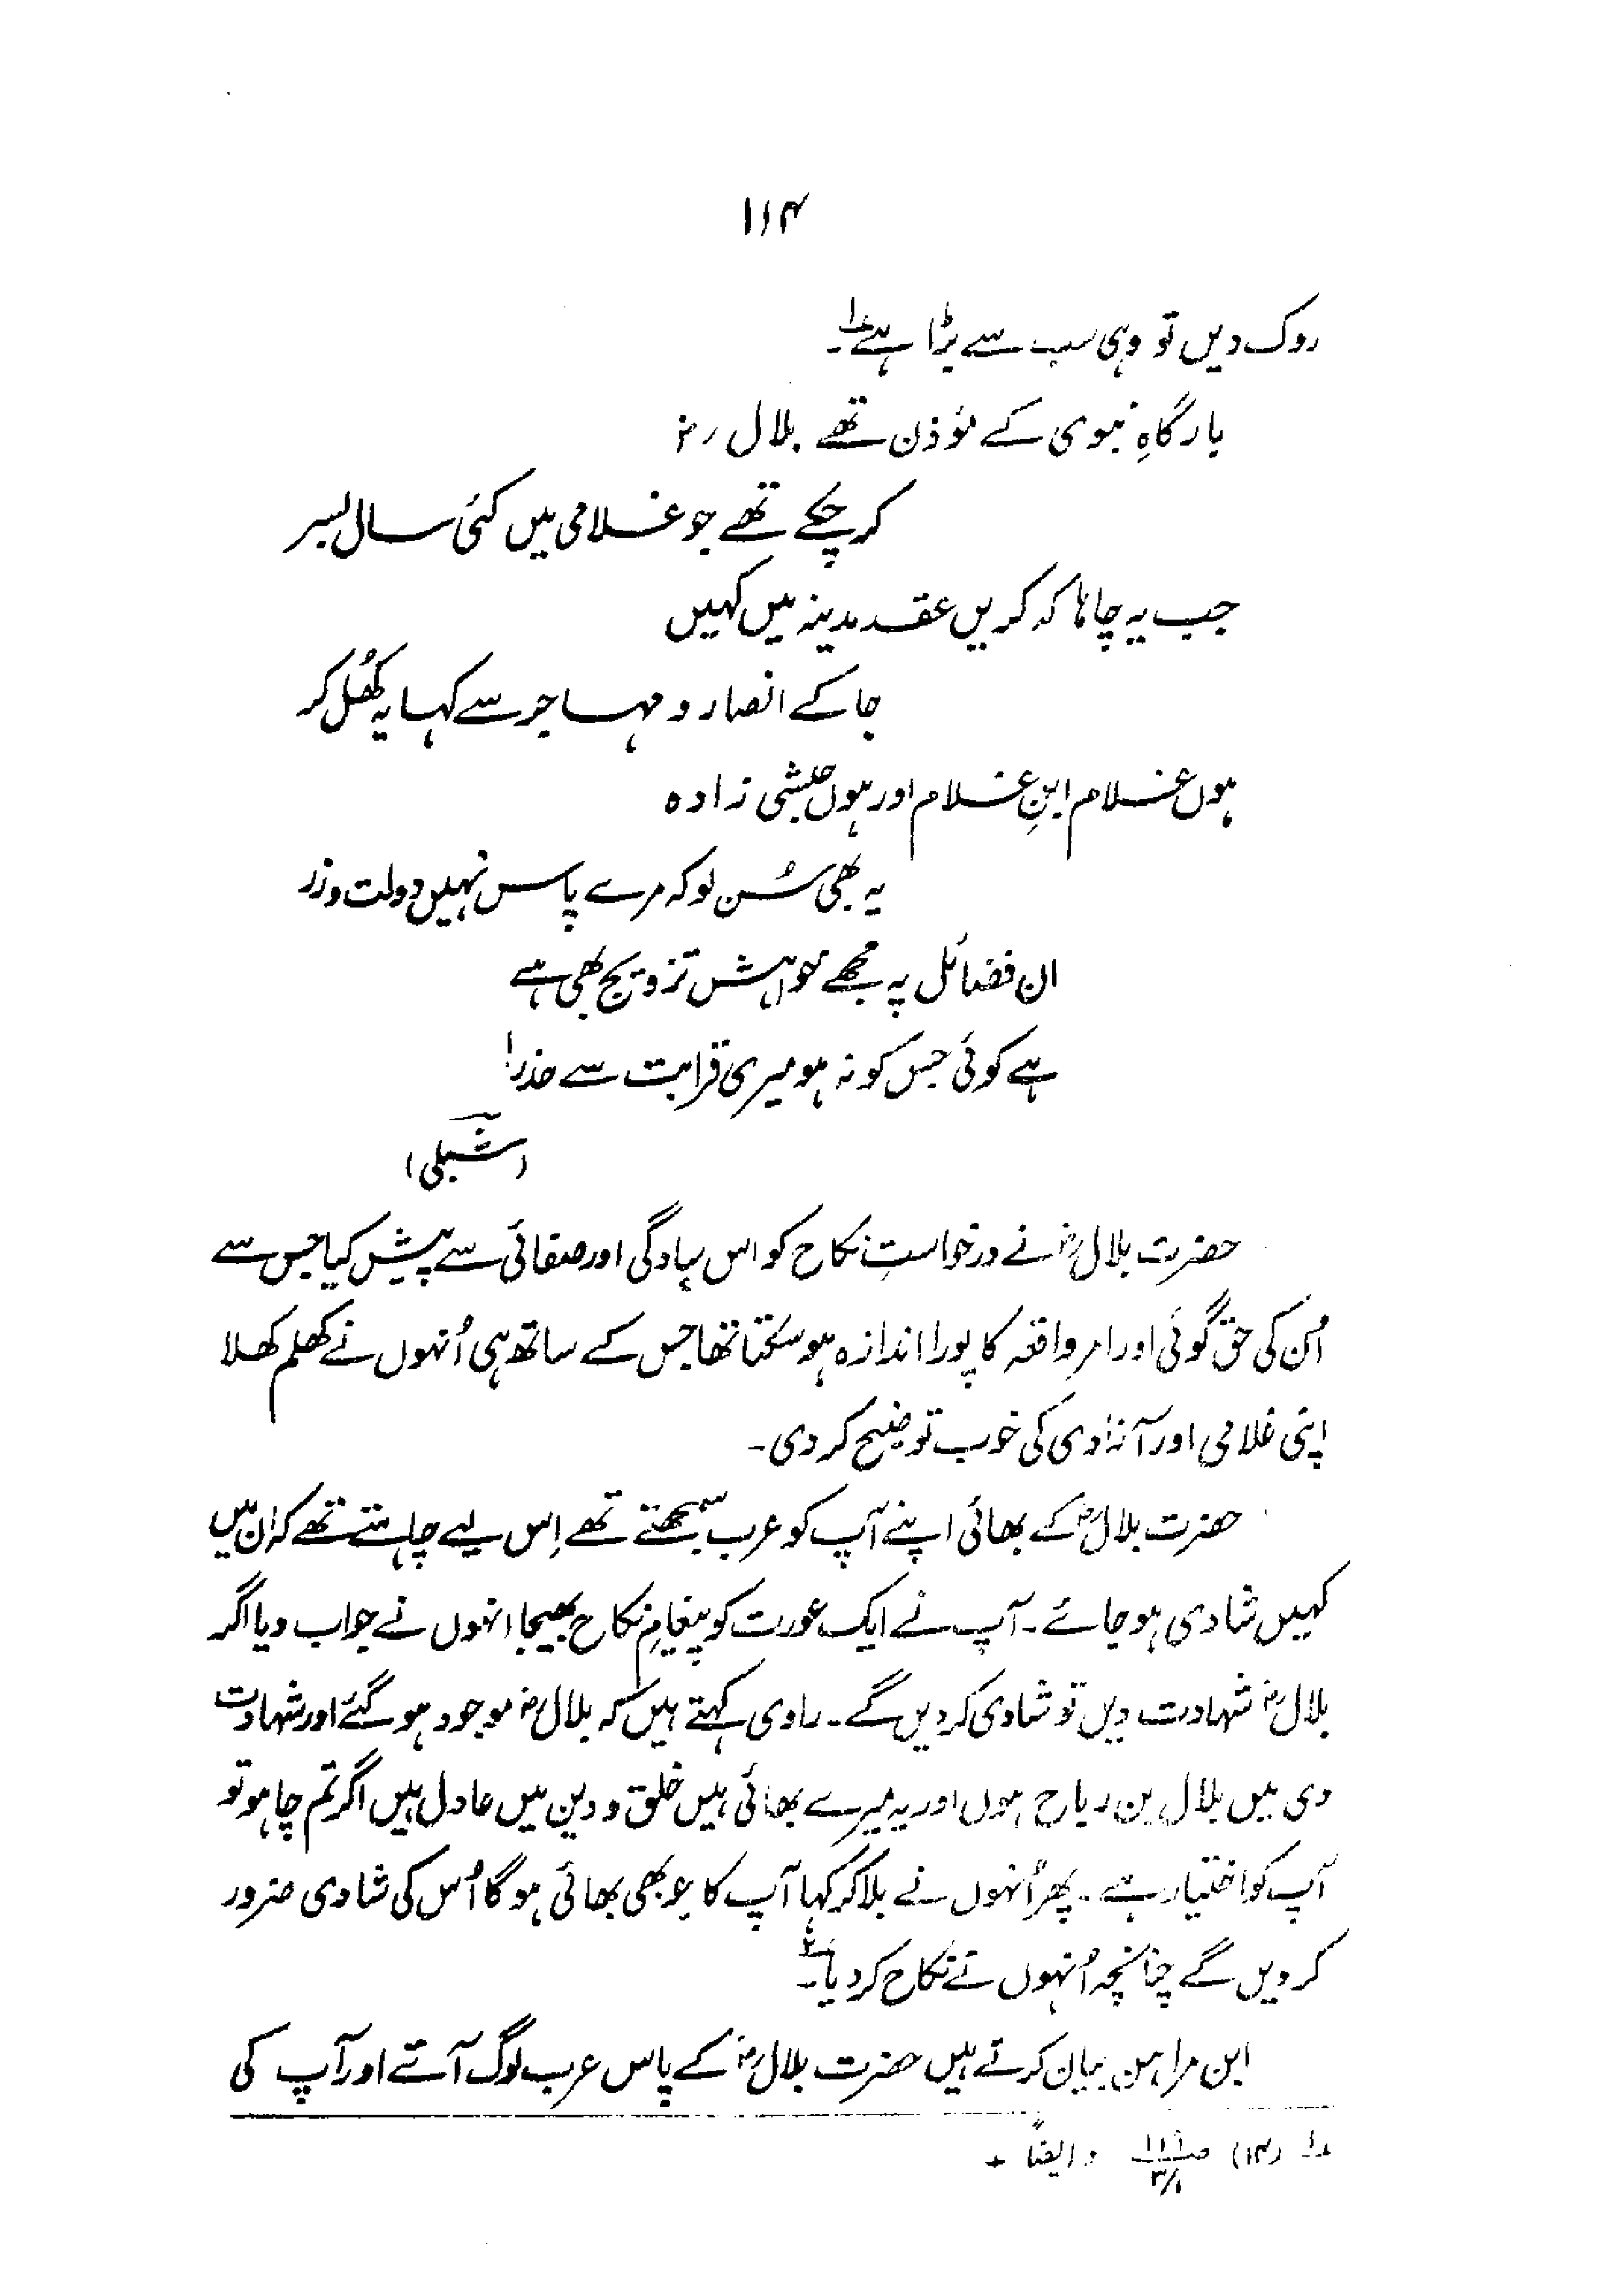 ۱۱۴
روک دیں تو وہی سب سے بڑا ہے۱؎۔
بارگاہِ نبوی کے مؤذن تھے بلال رض
کر چکے تھے جو غلامی میں کئی سال بسر
جب یہ چاہا کہ کریں عقد مدینہ میں کہیں
جا کے انصار و مہاجر سے کہا یہ کھُل کر
ہوں غلام ابنِ غلام اور ہوں حبشی زادہ
یہ بھی سُن لو کہ مرے پاس نہیں دولت و زر
ان فضائل پہ مجھے خواہش تزویج بھی ہے
ہے کوئی جس کو نہ ہو میری قرابت سے حذر!
(شبلی)
حضرت بلالؓ نے درخواستِ نکاح کو اس سادگی اور صفائی سے پیش کیا جس سے
اُن کی حق گوئی اور امرِ واقعہ کا پورا اندازہ ہو سکتا تھا جس کے ساتھ ہی اُنہوں نے کھلم کھلا
اپنی غلامی اور آزادی کی خوب توضیح کر دی۔
حضرت بلالؓ کے بھائی اپنے آپ کو عرب سمجھتے تھے اِس لیے چاہتے تھے کہ ان میں
کہیں شادی ہو جائے۔ آپ نے ایک عورت کو پیغامِ نکاح بھیجا انہوں نے جواب دیا اگر
بلالؓ شہادت دیں تو شادی کر دیں گے۔ راوی کہتے ہیں کہ بلالؓ موجود ہو گئے اور شہادت
دی میں بلال بن رباح ہوں اور یہ میرے بھائی ہیں خلق و دین میں عادل ہیں اگر تم چاہو تو
آپ کو اختیار ہے۔ پھر اُنہوں نے بلا کر کہا آپ کا جو بھی بھائی ہو گا اُس کی شادی ضرور
کر دیں گے چنانچہ اُنہوں نے نکاح کر دیا۲؎۔
ابن مراہن بیان کرتے ہیں حضرت بلالؓ کے پاس عرب لوگ آتے اور آپ کی
۱؎ (۱۴) صـ ۱۱۹ ۳/۱ ؛ ایضاً